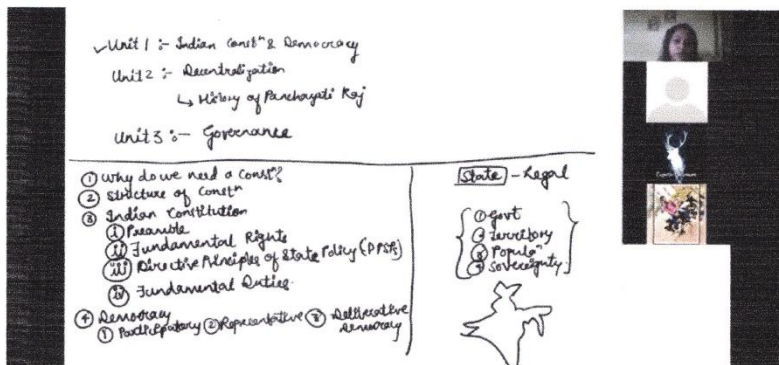 ✓Unit 1 :- Indian Constⁿ & Democracy
Unit 2 :- Decentralization
↳ History of Panchayati Raj
Unit 3 :- Governance
① Why do we need a Constⁿ?
② Structure of Constⁿ
③ Indian Constitution
ⓘ Preamble
ⓘⓘ Fundamental Rights
ⓘⓘⓘ Directive Principles of State Policy (DPSPs)
ⓘⓥ Fundamental Duties.
④ Democracy
① Participatory ② Representative ③ Deliberative Democracy
State - Legal
① Govt
② Territory
③ Populaⁿ
④ Sovereignty